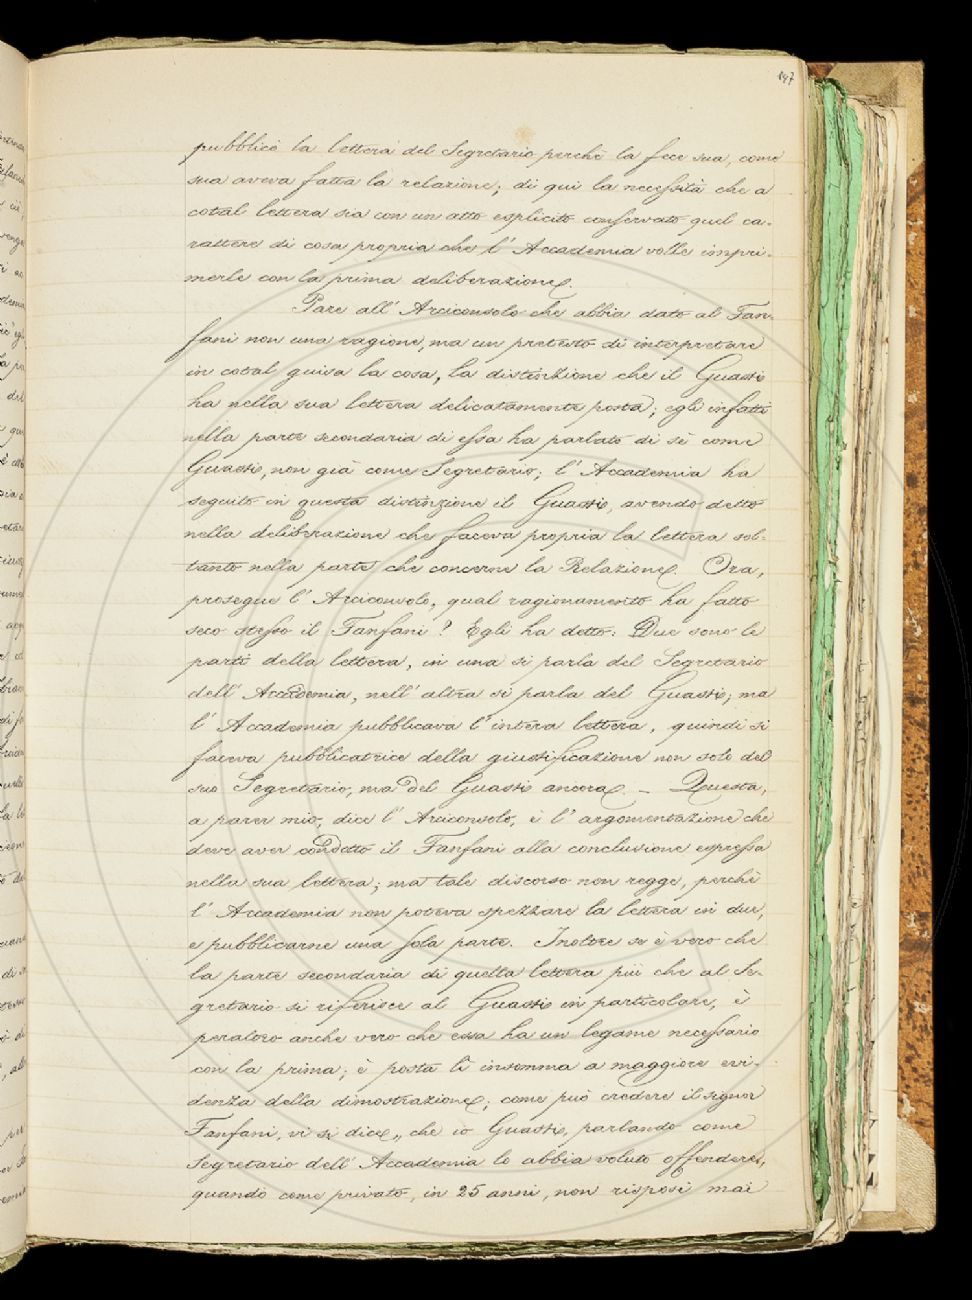 197
pubblicò la lettera del Segretario perchè la fece sua, come
sua aveva fatta la relazione; di qui la necessità che a
cotal lettera sia con un atto esplicito conservato quel ca-
rattere di cosa propria che l' Accademia volle impri-
merle con la prima deliberazione.
Pare all' Arciconsolo che abbia dato al Fan-
fani non una ragione, ma un pretesto di interpretare
in cotal guisa la cosa, la distinzione che il Guasti
ha nella sua lettera delicatamente posta; egli infatti
nella parte secondaria di essa ha parlato di sè come
Guasti, non già come Segretario; l' Accademia ha
seguito in questa distinzione il Guasti, avendo detto
nella deliberazione che faceva propria la lettera sol-
tanto nella parte che concerne la Relazione. Ora,
prosegue l' Arciconsolo, qual ragionamento ha fatto
seco stesso il Fanfani? Egli ha detto: Due sono le
parti della lettera, in una si parla del Segretario
dell' Accademia, nell' altra si parla del Guasti; ma
l' Accademia pubblicava l' intera lettera, quindi si
faceva pubblicatrice della giustificazione non solo del
suo Segretario, ma del Guasti ancora. – Questa,
a parer mio, dice l' Arciconsolo, è l' argomentazione che
deve aver condotto il Fanfani alla conclusione espressa
nella sua lettera; ma tale discorso non regge, perchè
l' Accademia non poteva spezzare la lettera in due,
e pubblicarne una sola parte. Inoltre se è vero che
la parte secondaria di quella lettera più che al Se-
gretario si riferisce al Guasti in particolare, è
peraltro anche vero che essa ha un legame necessario
con la prima; è posta lì insomma a maggiore evi-
denza della dimostrazione; come può credere il signor
Fanfani, vi si dice „ che io Guasti, parlando come
Segretario dell' Accademia lo abbia voluto offendere,
quando come privato, in 25 anni, non risposi mai